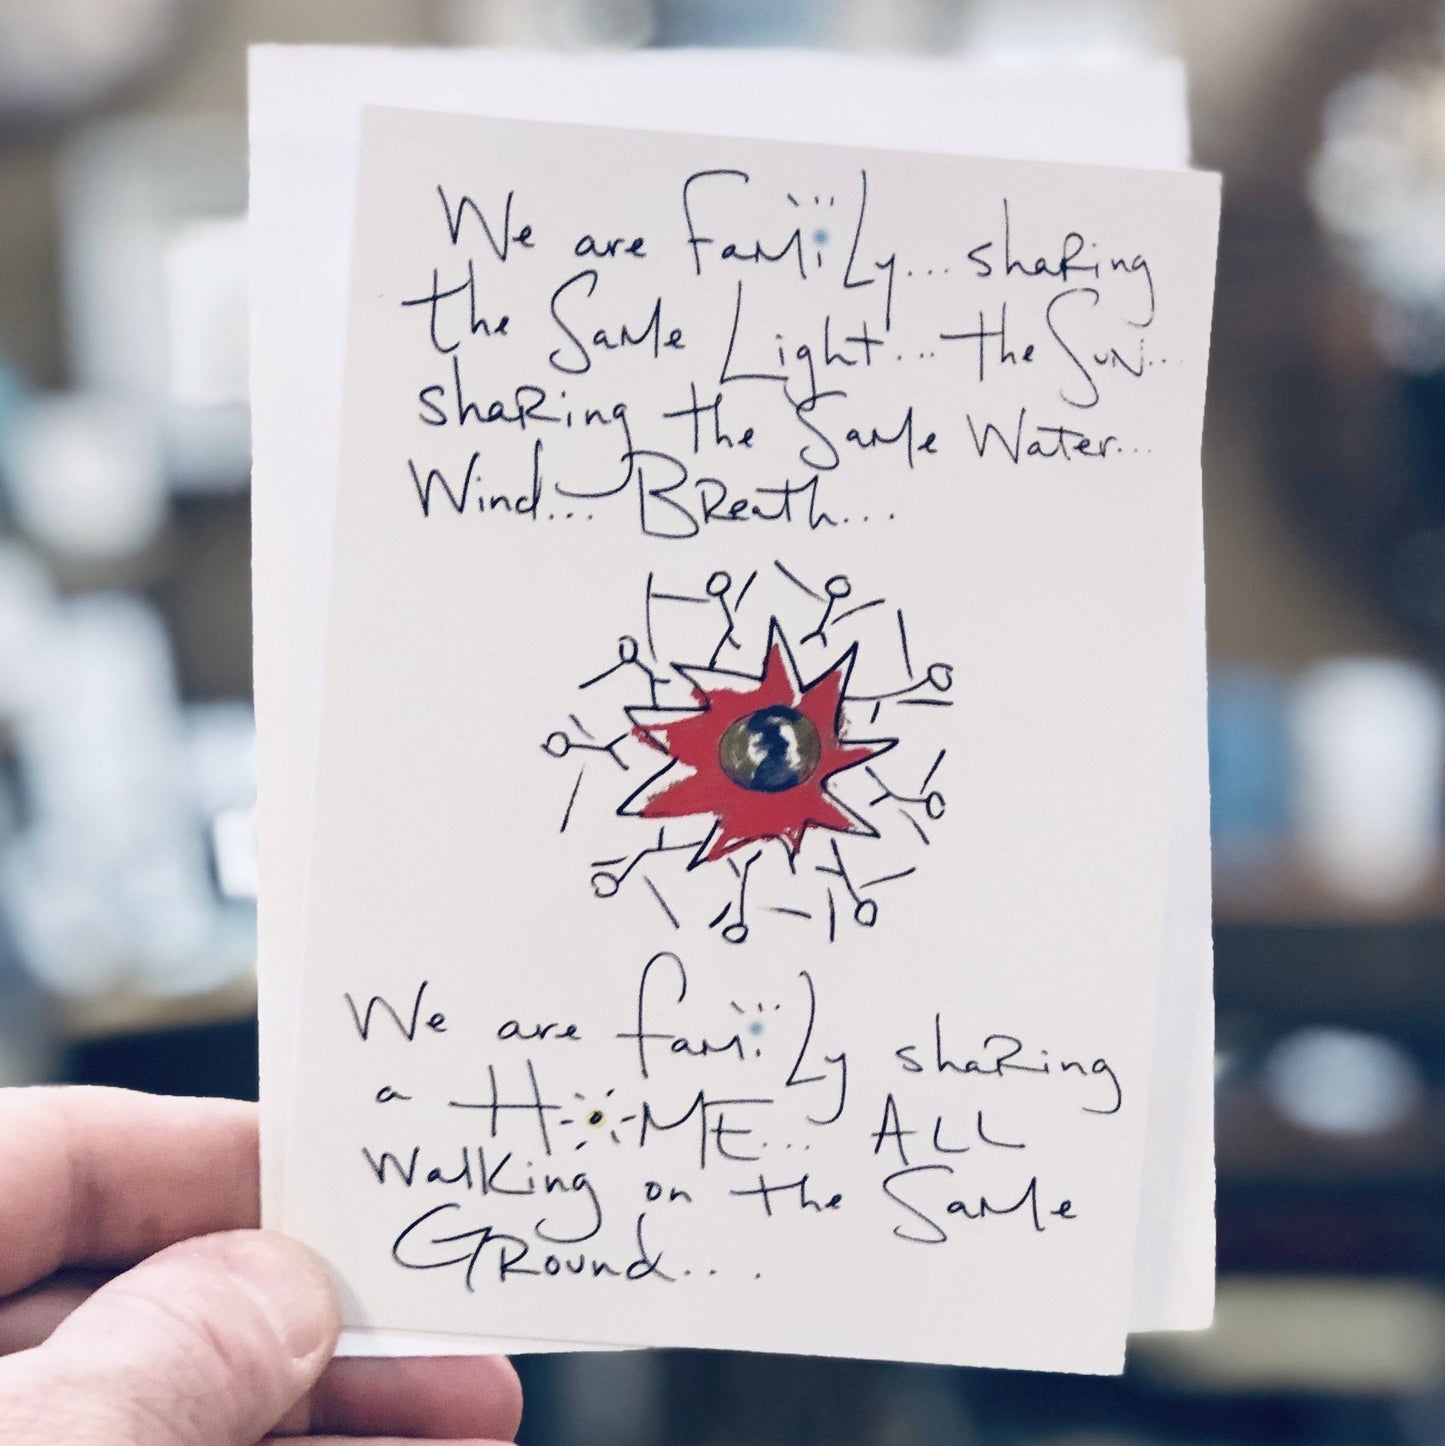 We are FaMiLy... shaRing
the SaMe Light... the Sun...
shaRing the SaMe Water...
Wind... BReath...
We are faMiLy shaRing
a HOME... ALL
Walking on the SaMe
GRound...